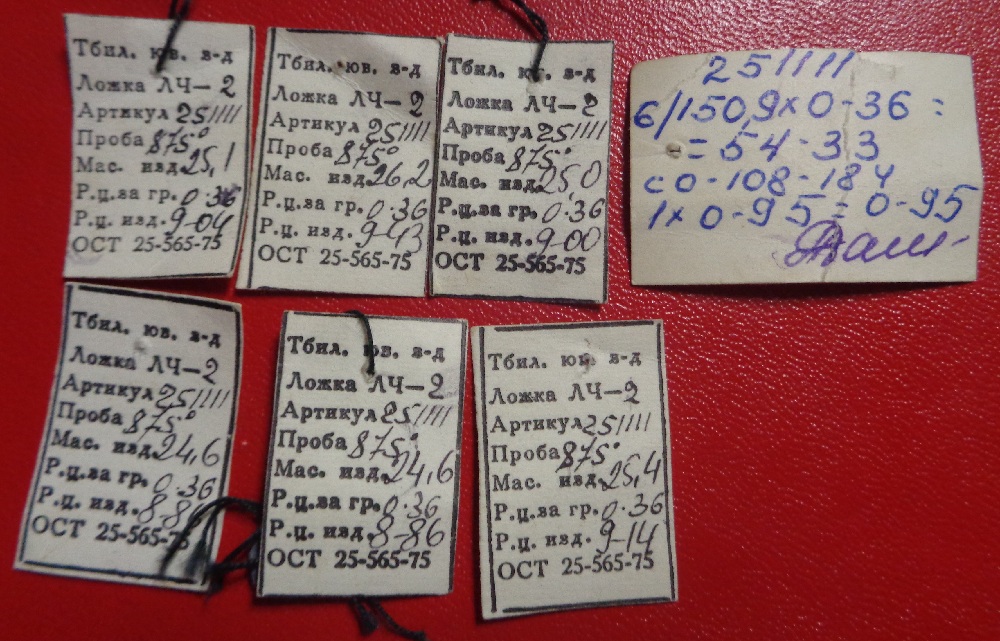 Тбил. юв. з-д
Ложка ЛЧ-2
Артикул 251111
Проба 875°
Мас. изд. 25,1
Р.ц. за гр. 0-36
Р.ц. изд. 9-04
ОСТ 25-565-75
Тбил. юв. з-д
Ложка ЛЧ-2
Артикул 251111
Проба 875°
Мас. изд. 26,2
Р.ц. за гр. 0-36
Р.ц. изд. 9-43
ОСТ 25-565-75
Тбил. юв. з-д
Ложка ЛЧ-2
Артикул 251111
Проба 875°
Мас. изд. 25,0
Р.ц. за гр. 0,36
Р.ц. изд. 9-00
ОСТ 25-565-75
251111
6/150,9х0-36 =
= 54-33
с 0-108-184
1х0-95 = 0-95
Тбил. юв. з-д
Ложка ЛЧ-2
Артикул 251111
Проба 875°
Мас. изд. 24,6
Р.ц. за гр. 0-36
Р.ц. изд.
ОСТ 25-565-75
Тбил. юв. з-д
Ложка ЛЧ-2
Артикул 251111
Проба 875°
Мас. изд. 24,6
Р.ц. за гр. 0-36
Р.ц. изд. 8-86
ОСТ 25-565-75
Тбил. юв. з-д
Ложка ЛЧ-2
Артикул 251111
Проба 875°
Мас. изд. 25,4
Р.ц. за гр. 0-36
Р.ц. изд. 9-14
ОСТ 25-565-75